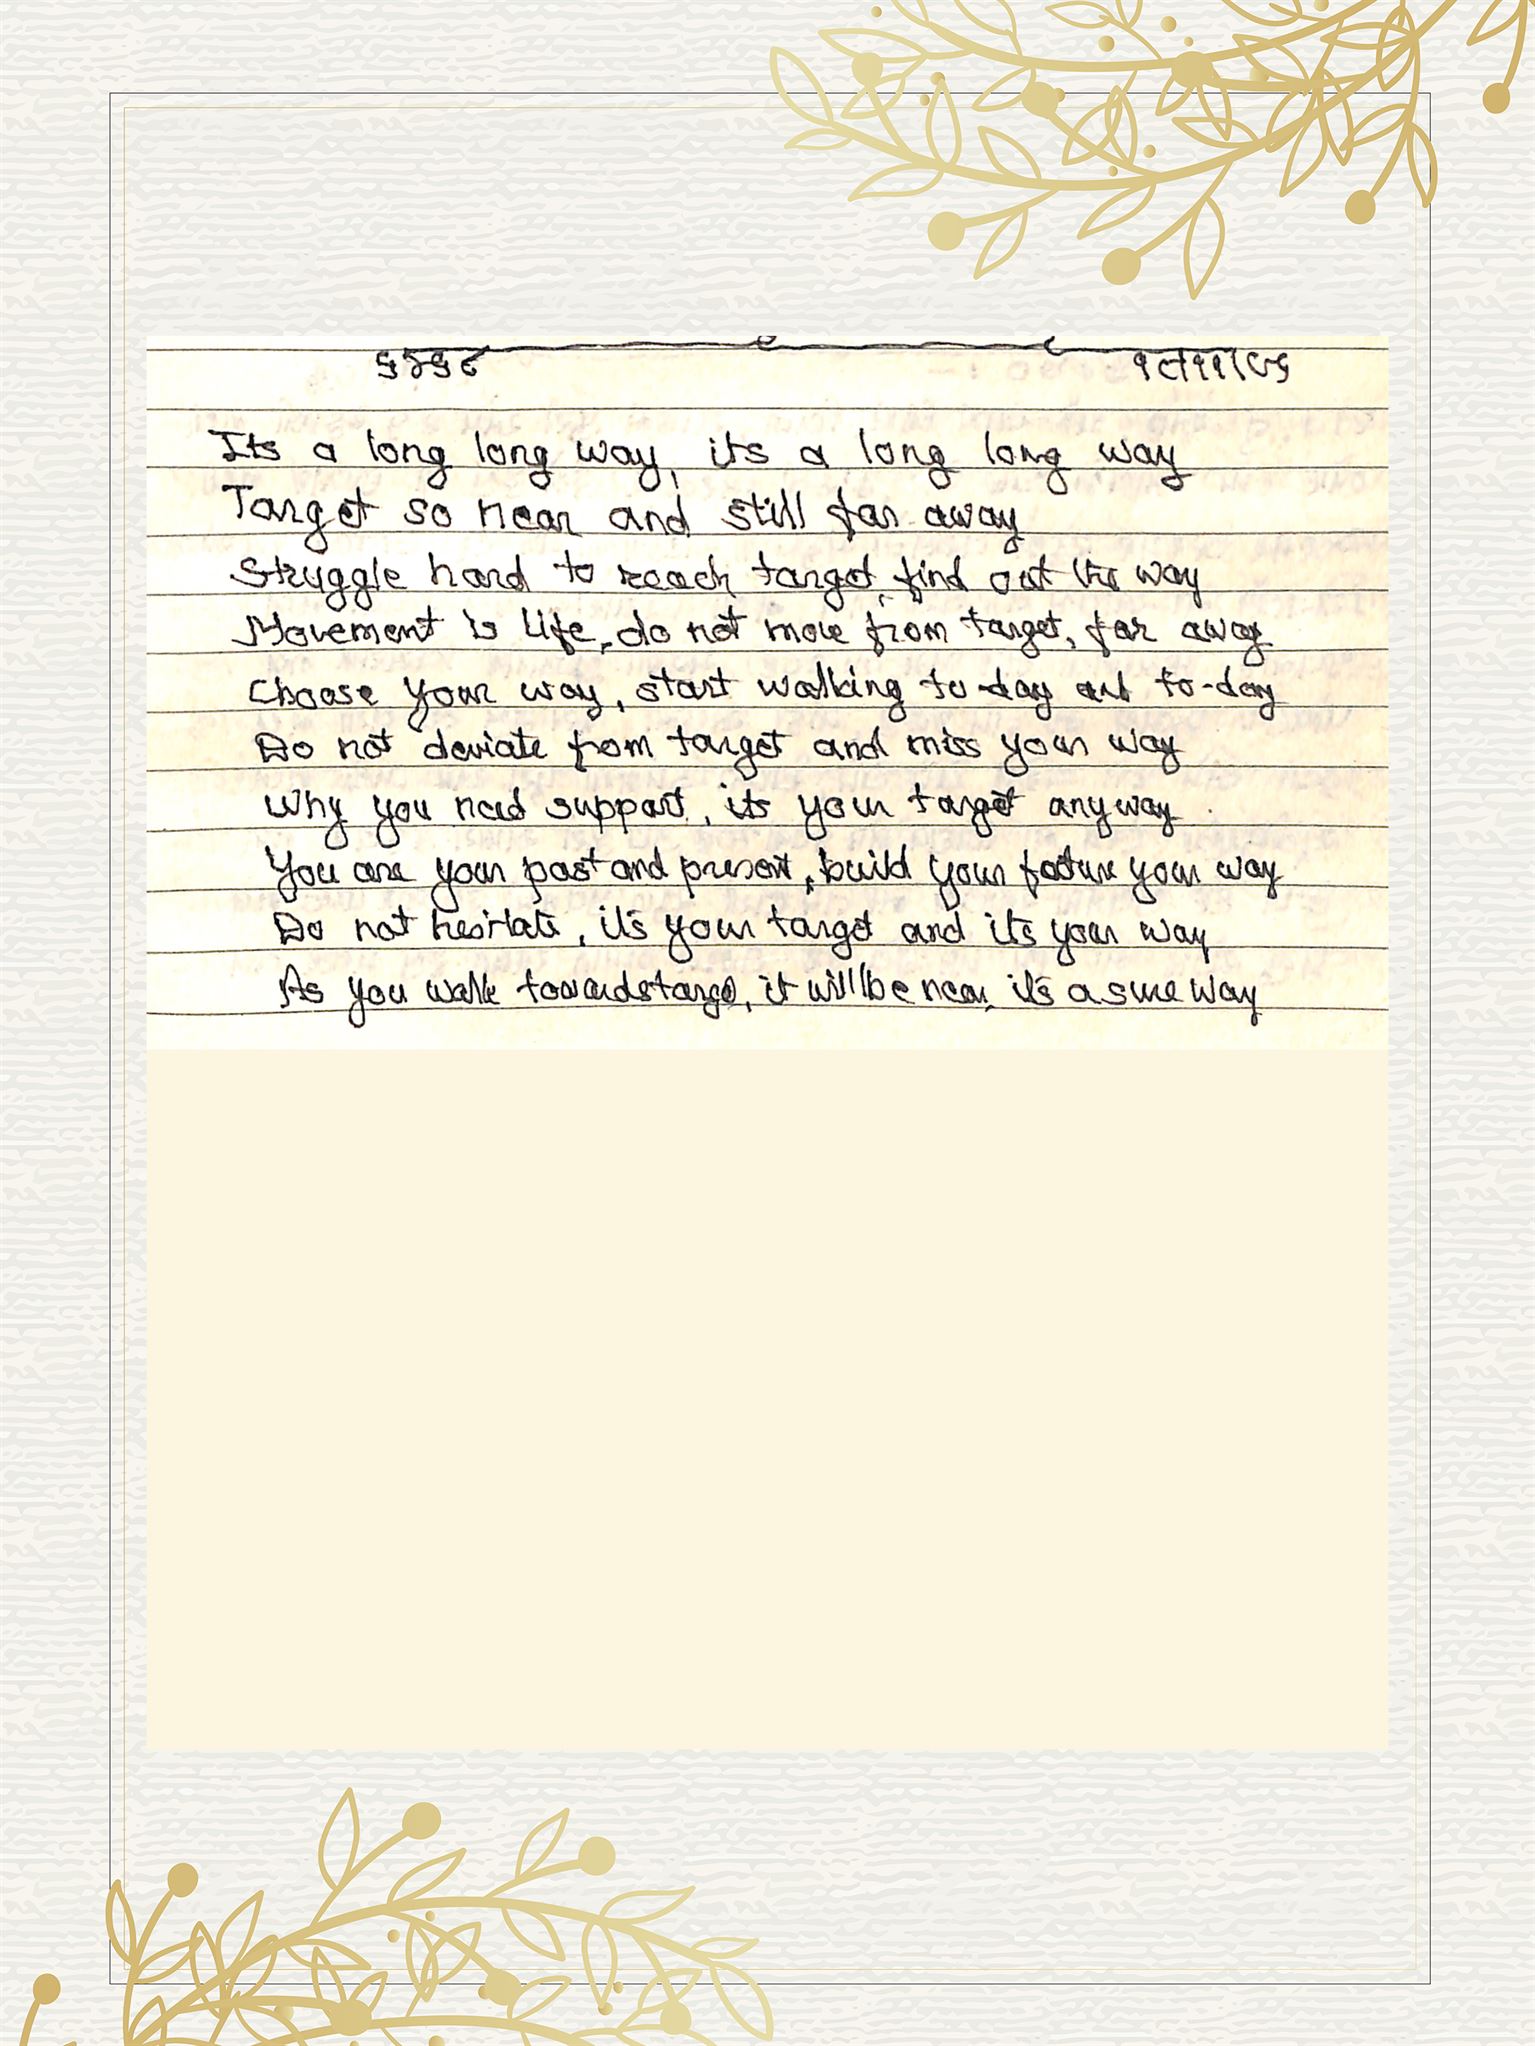 Its a long long way, its a long long way
Target so near and still far away
Struggle hard to reach target, find out the way
Movement is life, do not move from target, far away
Choose your way, start walking to-day and to-day
Do not deviate from target and miss your way
Why you need support, its your target anyway
You are your past and present, build your future your way
Do not hesitate, it's your target and it's your way
As you walk towards target, it will be near, it's a sure way